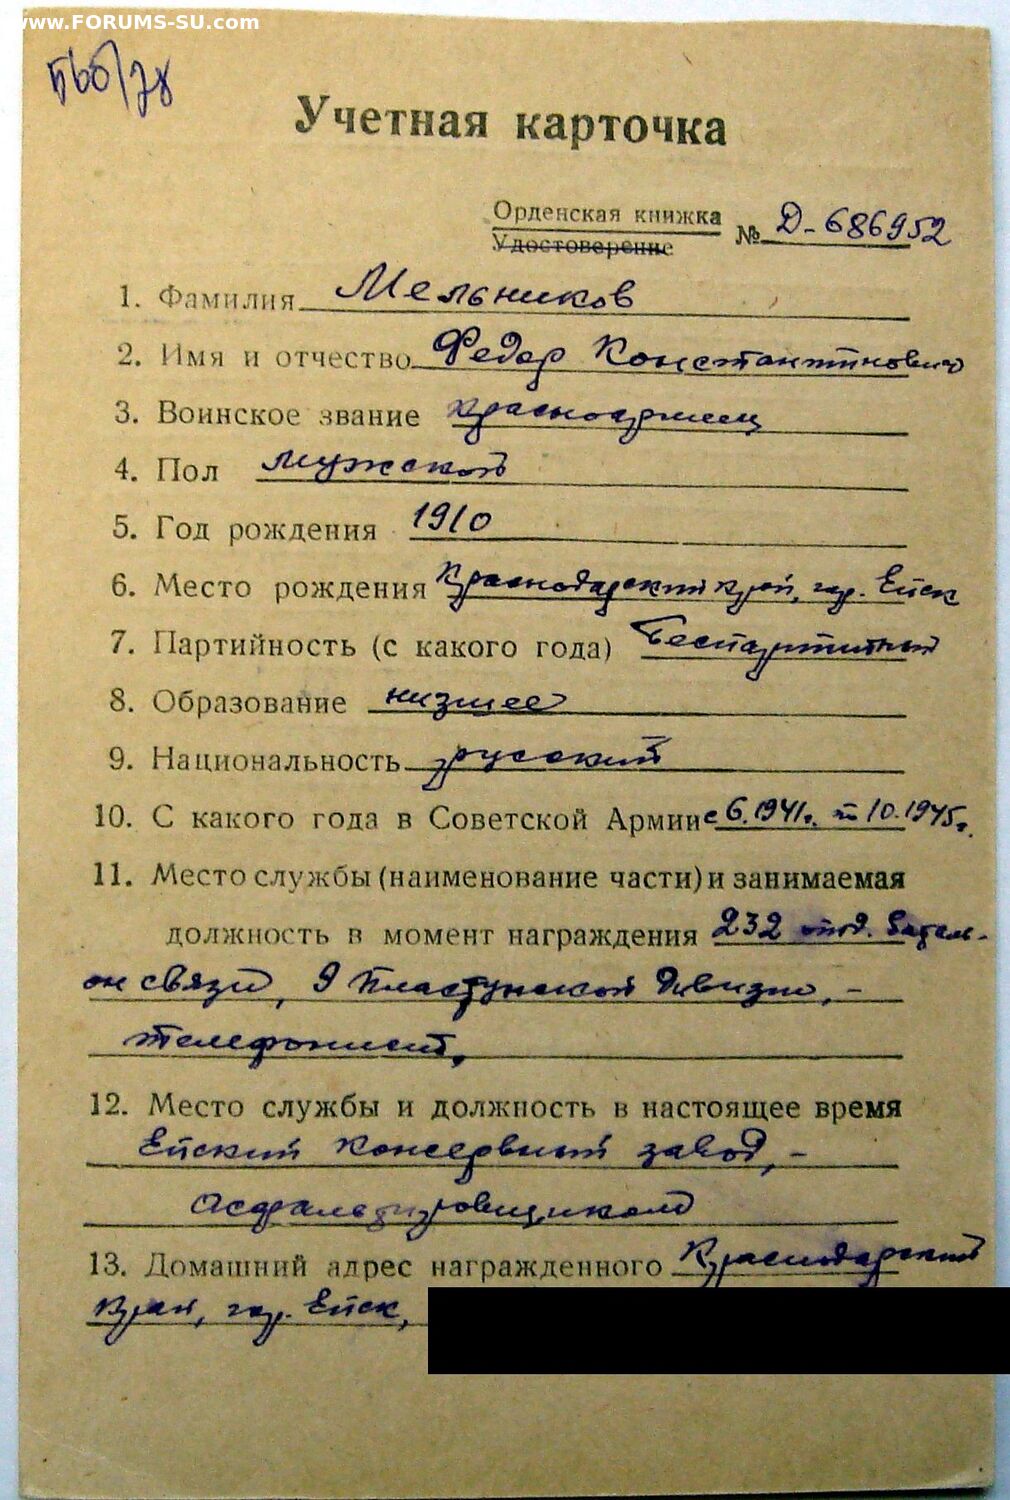 www.FORUMS-SU.com
Учетная карточка
Орденская книжка
Удостоверение
№ Д-686952
1. Фамилия Мельников
2. Имя и отчество Федор Константинович
3. Воинское звание красноармеец
4. Пол мужской
5. Год рождения 1910
6. Место рождения Краснодарский край, гор. Ейск
7. Партийность (с какого года) Беспартийный
8. Образование низшее
9. Национальность русский
10. С какого года в Советской Армии с 6.1941г. по 10.1945г.
11. Место службы (наименование части) и занимаемая
должность в момент награждения 232 отд. баталь-
он связи, 9 Пластунской дивизии, -
телефонист.
12. Место службы и должность в настоящее время
Ейский консервный завод, -
асфальтировщиком
13. Домашний адрес награжденного Краснодарский
край, гор. Ейск,